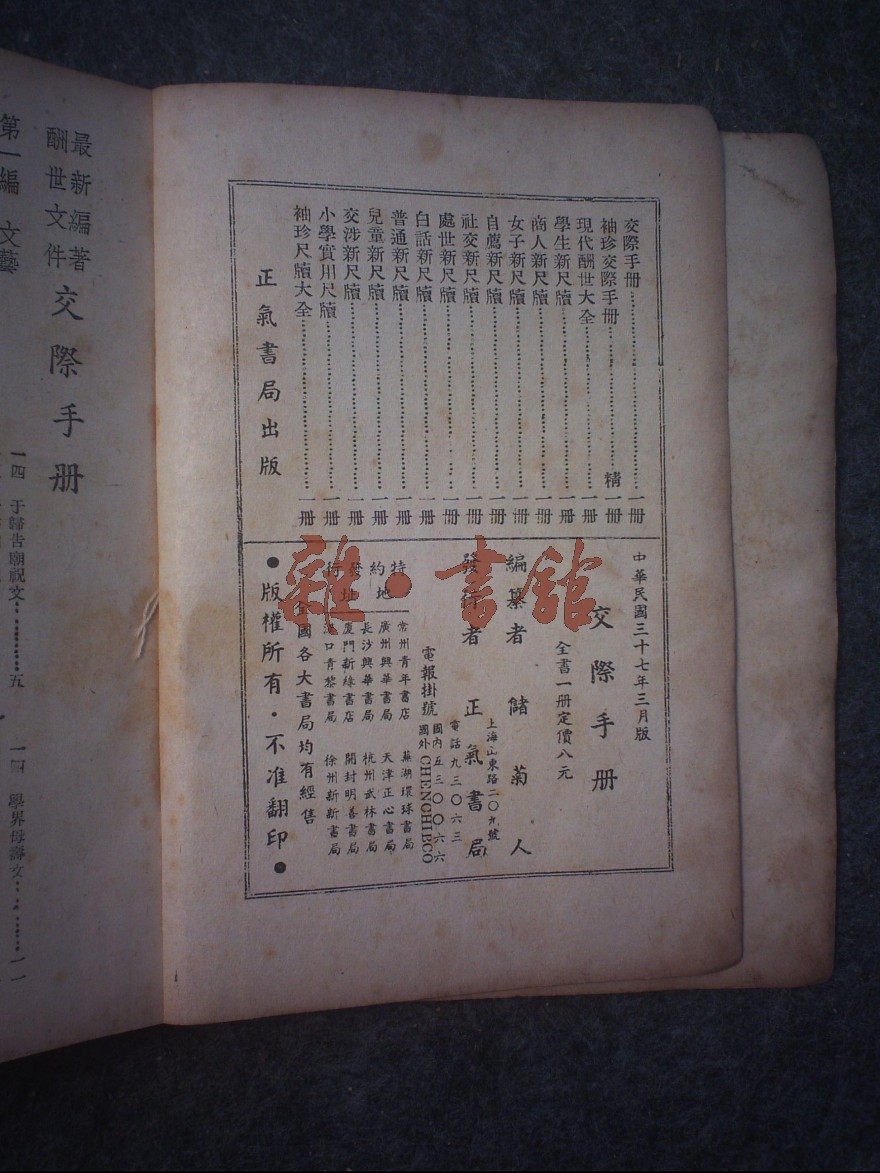 交際手册……一册
袖珍交際手册……精一册
現代酬世大全……一册
學生新尺牘……一册
商人新尺牘……一册
女子新尺牘……一册
自薦新尺牘……一册
社交新尺牘……一册
處世新尺牘……一册
白話新尺牘……一册
普通新尺牘……一册
兒童新尺牘……一册
交涉新尺牘……一册
小學實用尺牘……一册
袖珍尺牘大全……一册
正氣書局出版
中華民國三十七年三月版
交際手册
全書一册定價八元
編纂者 儲菊人
發行者 正氣書局
上海山東路二〇九號
電話九三〇六三
電報掛號
國內五三〇〇六六
國外CHENCHIBCO
特約
發行
地址
常州青年書店 蕪湖環球書局
廣州興華書局 天津正心書局
長沙興華書局 杭州武林書局
廈門新綠書店 開封明善書局
漢口青黎書局 徐州新新書局
全國各大書局均有經售
●版權所有・不准翻印●
最新編著
酬世文件
交際手册
第一編 文藝
一四 于歸告廟祝文……五
一四 學界母壽文……一一
雜·書館